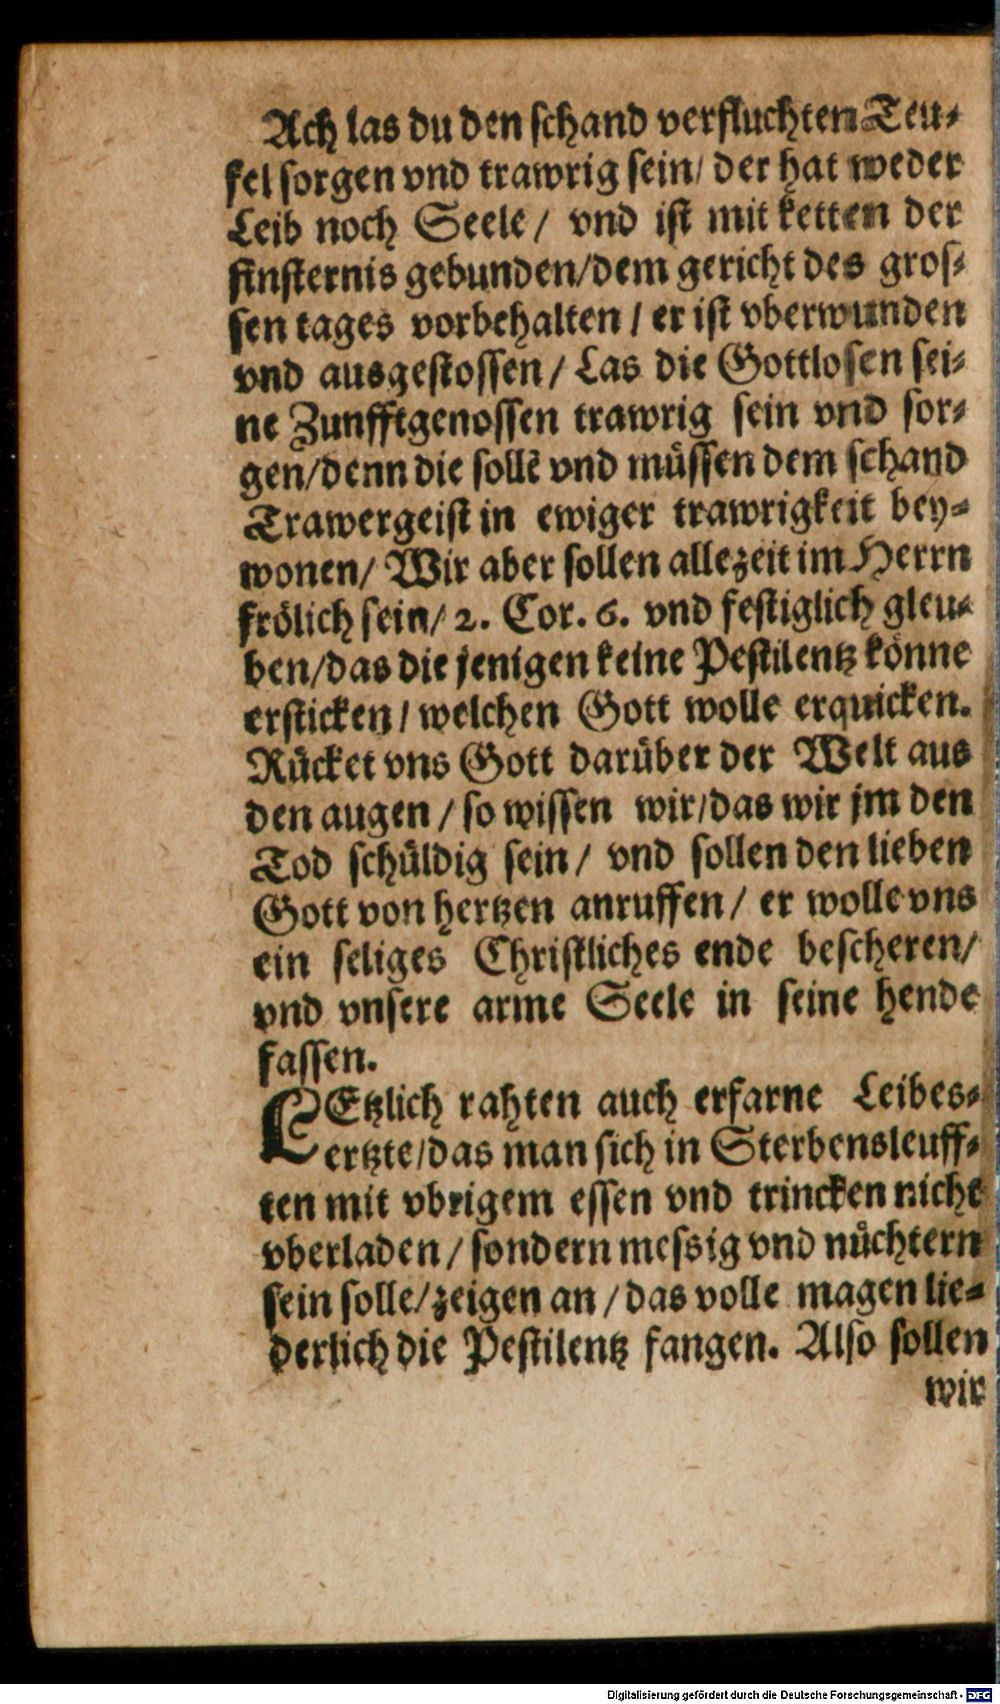 Ach las du den schand verfluchten Teu⸗
fel sorgen vnd trawrig sein/ der hat weder
Leib noch Seele/ vnd ist mit ketten der
finsternis gebunden/dem gericht des gros⸗
sen tages vorbehalten/ er ist vberwunden
vnd ausgestossen/ Las die Gottlosen sei⸗
ne Zunfftgenossen trawrig sein vnd sor⸗
gen/denn die sollē vnd müssen dem schand
Trawergeist in ewiger trawrigkeit bey⸗
wonen/ Wir aber sollen allezeit im Herrn
frölich sein/ 2. Cor. 6. vnd festiglich gleu⸗
ben/das die jenigen keine Pestilentz könne
ersticken/ welchen Gott wolle erquicken.
Rücket vns Gott darüber der Welt aus
den augen/ so wissen wir/das wir jm den
Tod schüldig sein/ vnd sollen den lieben
Gott von hertzen anruffen/ er wolle vns
ein seliges Christliches ende bescheren/
vnd vnsere arme Seele in seine hende
fassen.
LEtzlich rahten auch erfarne Leibes⸗
ertzte/das man sich in Sterbensleuff⸗
ten mit vbrigem essen vnd trincken nicht
vberladen/ sondern messig vnd nüchtern
sein solle/zeigen an/das volle magen lie⸗
derlich die Pestilentz fangen. Also sollen
wir
Digitalisierung gefördert durch die Deutsche Forschungsgemeinschaft - DFG